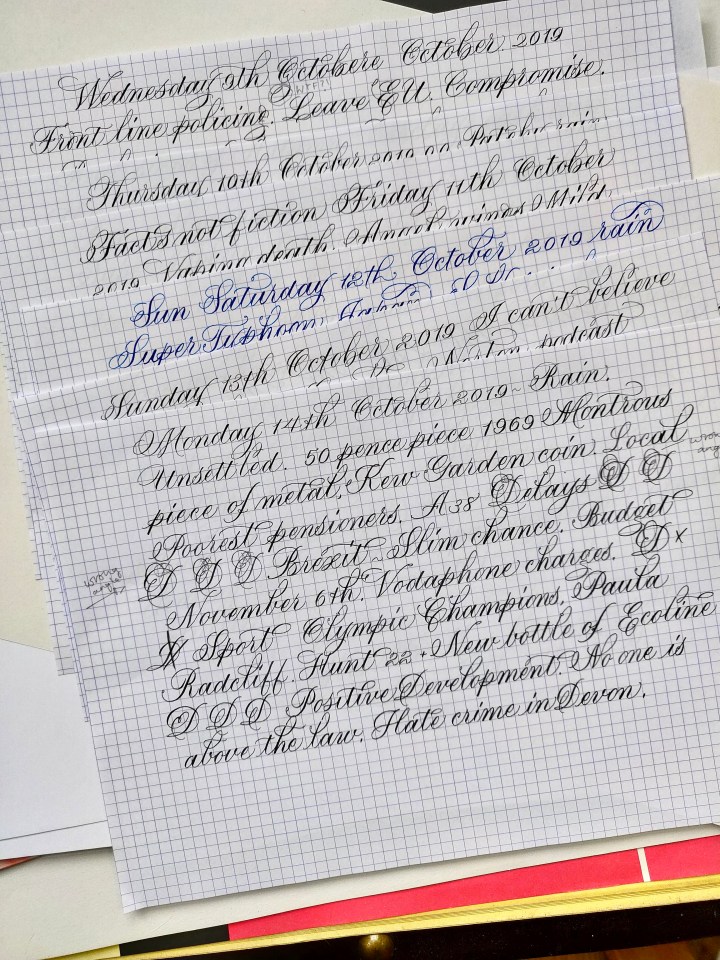 Wednesday 9th Octobere October 2019
Front line policing. Leave EU. Compromise.
Thursday 10th October 2019 rain
Facts not fiction Friday 11th October
2019 Vaping death. Mild
Sun Saturday 12th October 2019 rain
Super Typhoon
Sunday 13th October 2019 I can't believe
Norton podcast
Monday 14th October 2019 - Rain.
Unsettled. 50 pence piece 1969 Montrous
piece of metal. Kew Garden coin. Local
wrong angle
Poorest pensioners. A38 Delays D D
D D D Brexit. Slim chance. Budget
wrong angle
November 6th. Vodaphone charges. D x
X Sport Olympic Champions. Paula
Radcliff. Hunt 22 + New bottle of Ecoline
D D D Positive Development. No one is
above the law. Hate crime in Devon.